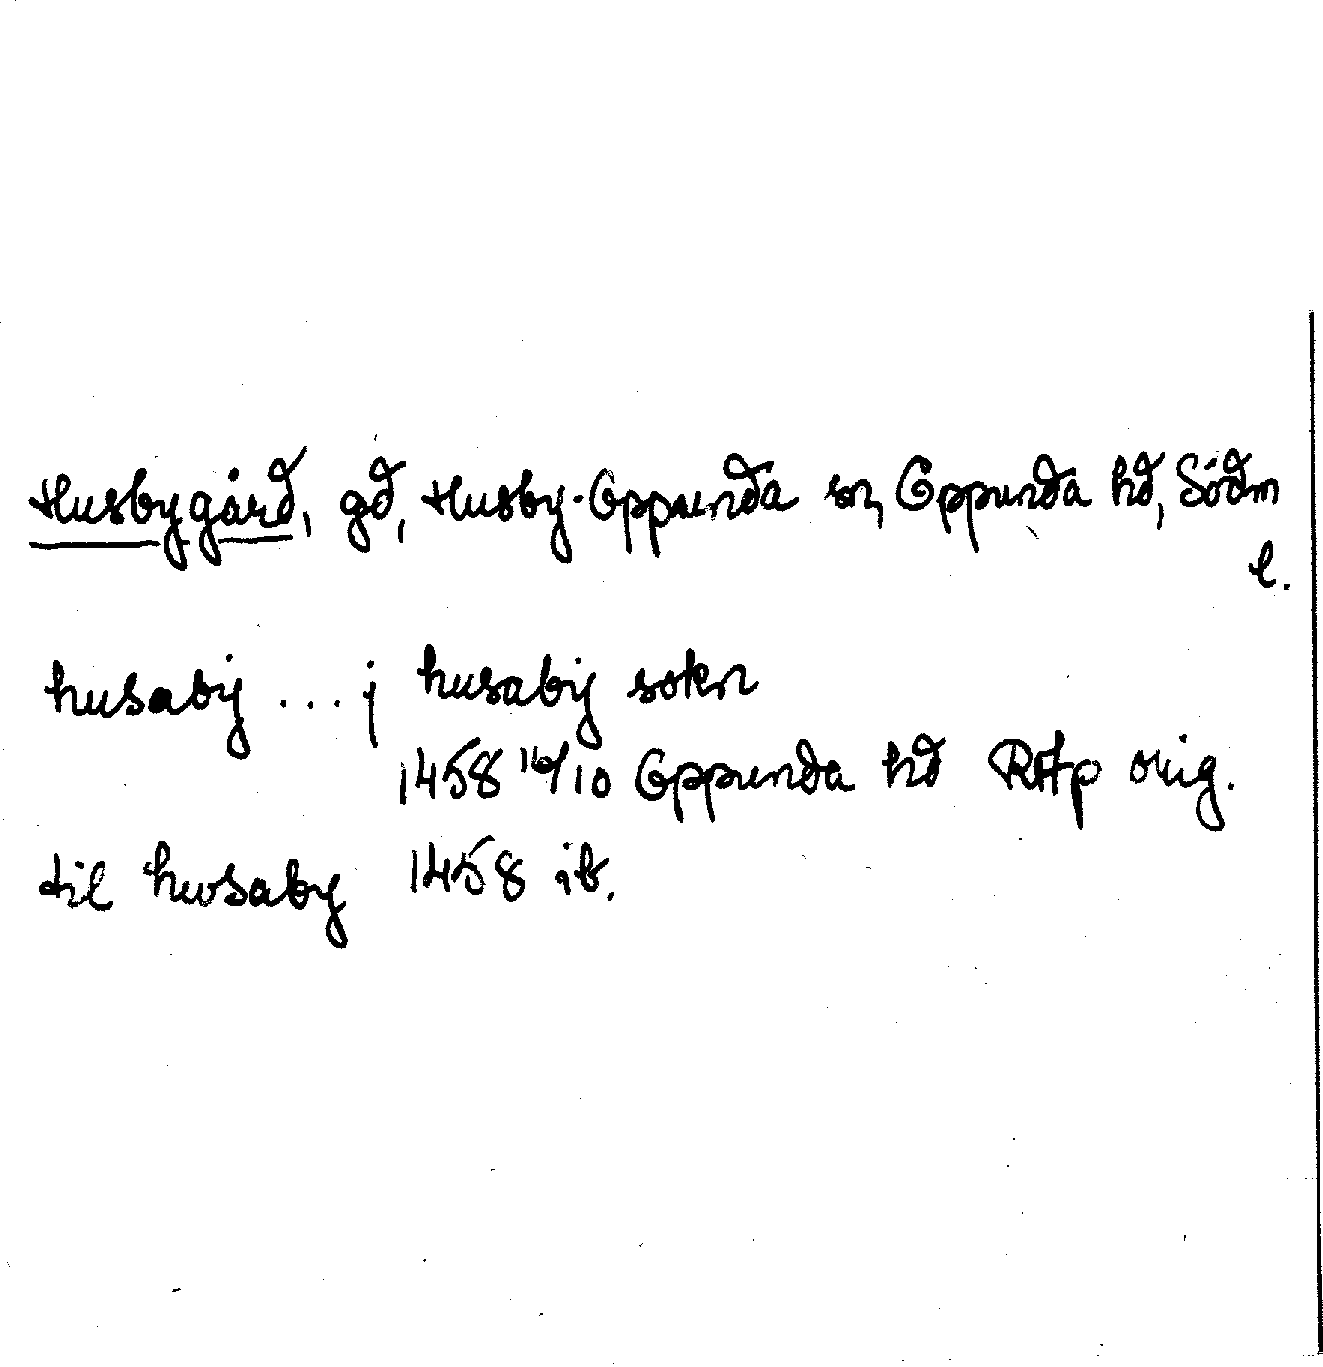 Husbygård, gd, Husby-Oppunda sn, Oppunda hd, Södm
l.
husabÿ ... j husabÿ sokn
1458 16/10 Oppunda hd RAp orig.
til hwsaby 1458 ib.